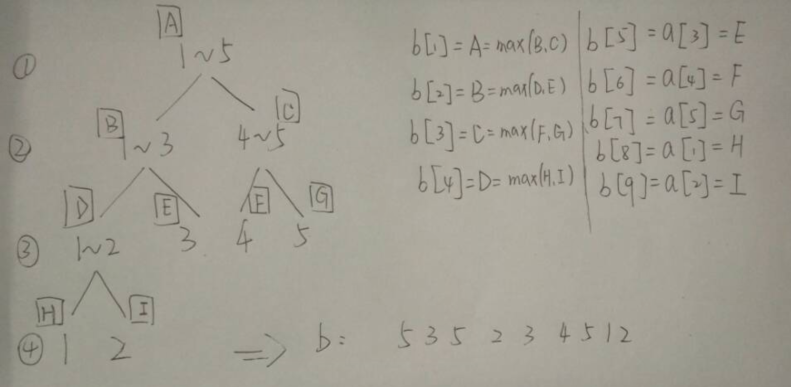 A
① 1~5
B C
② 1~3 4~5
D E F G
③ 1~2 3 4 5
H I
④ 1 2
=> b: 5 3 5 2 3 4 5 1 2
b[1]=A=max(B,C)
b[2]=B=max(D,E)
b[3]=C=max(F,G)
b[4]=D=max(H,I)
b[5]=a[3]=E
b[6]=a[4]=F
b[7]=a[5]=G
b[8]=a[1]=H
b[9]=a[2]=I